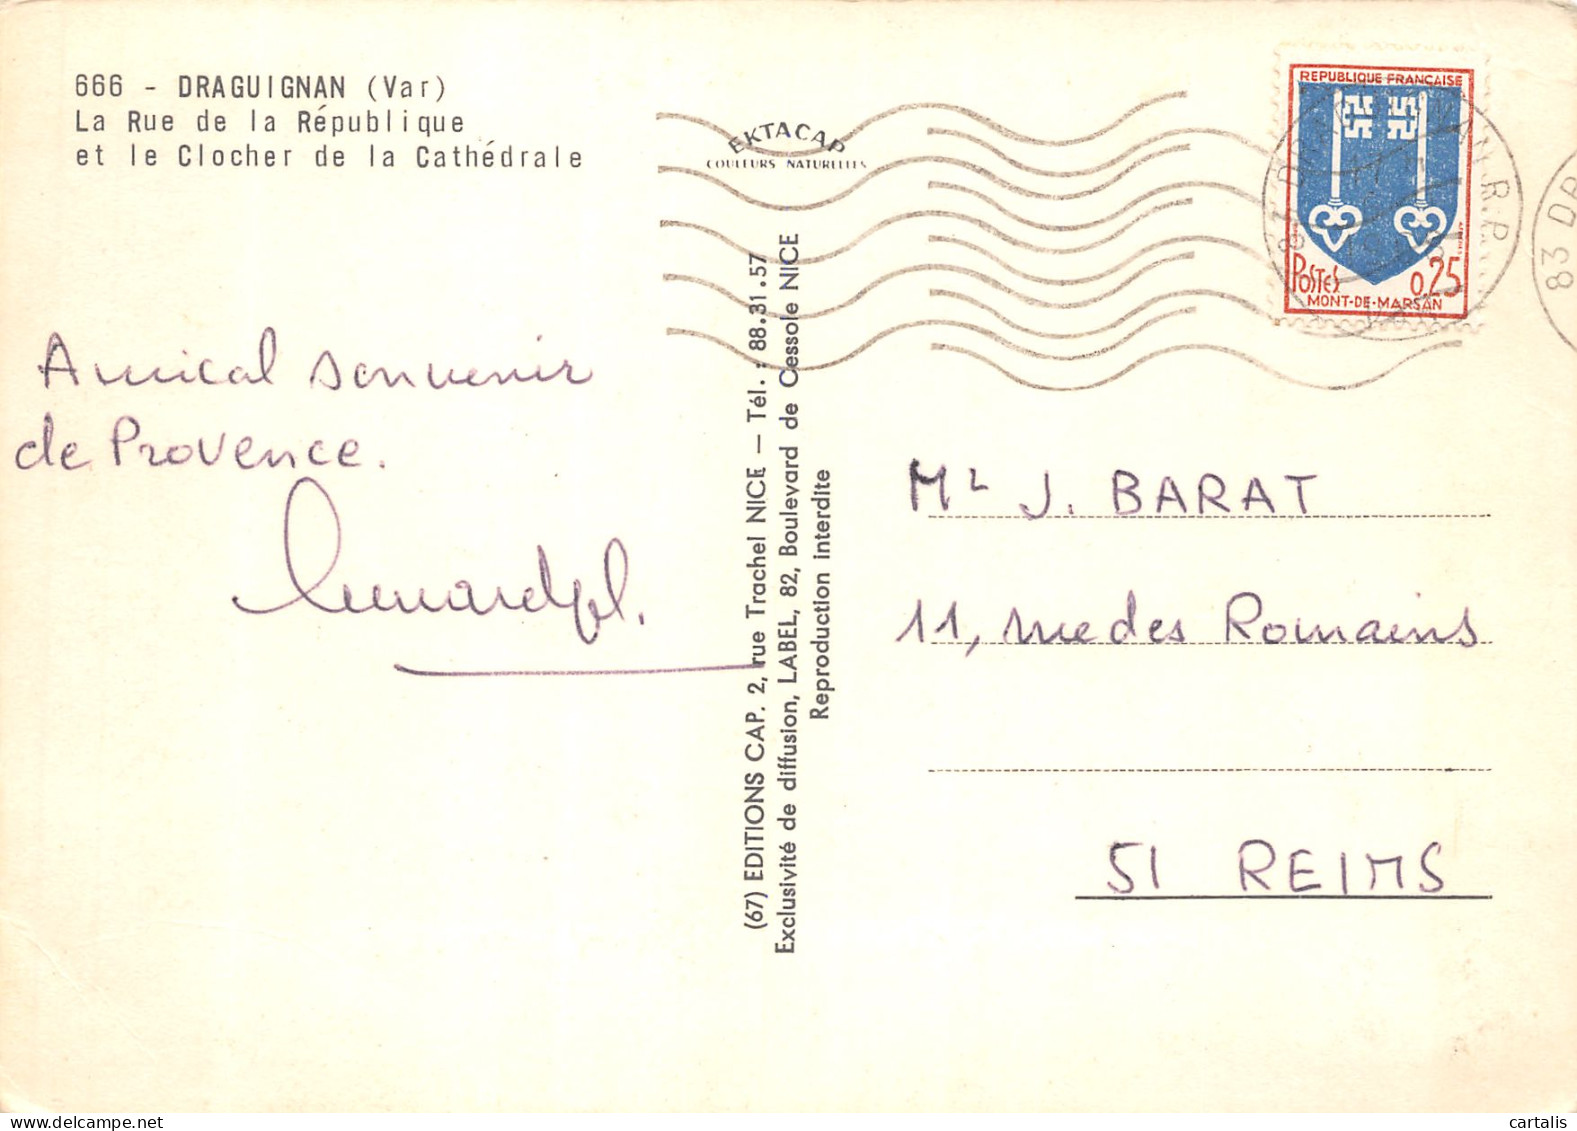 666 - DRAGUIGNAN (Var)
La Rue de la République
et le Clocher de la Cathédrale
EKTACAP
COULEURS NATURELLES
REPUBLIQUE FRANÇAISE
POSTES 0,25
MONT-DE-MARSAN
R.P.
83 DR
Amical souvenir
de Provence.
(67) EDITIONS CAP. 2, rue Trachel NICE — Tél. : 88.31.57
Exclusivité de diffusion, LABEL, 82, Boulevard de Cessole NICE
Reproduction interdite
J. BARAT
11, rue des Romains
51 REIMS
delcampe.net
cartalis